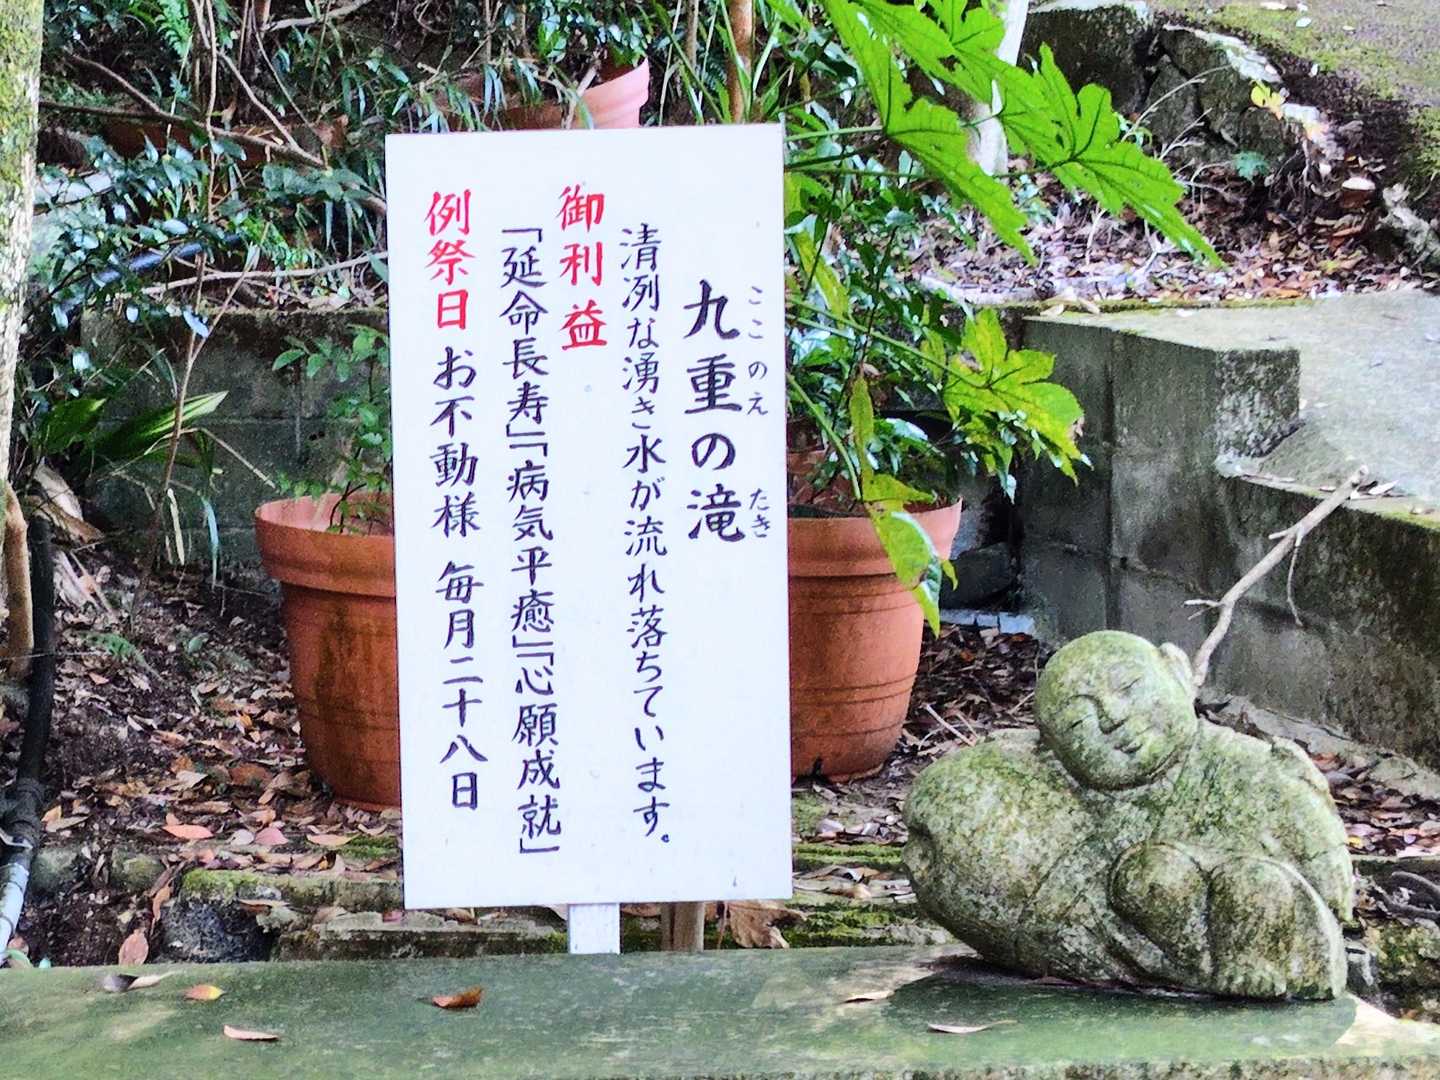 九重の滝
ここのえ たき
清冽な湧き水が流れ落ちています。
御利益
「延命長寿」「病気平癒」「心願成就」
例祭日 お不動様 毎月二十八日